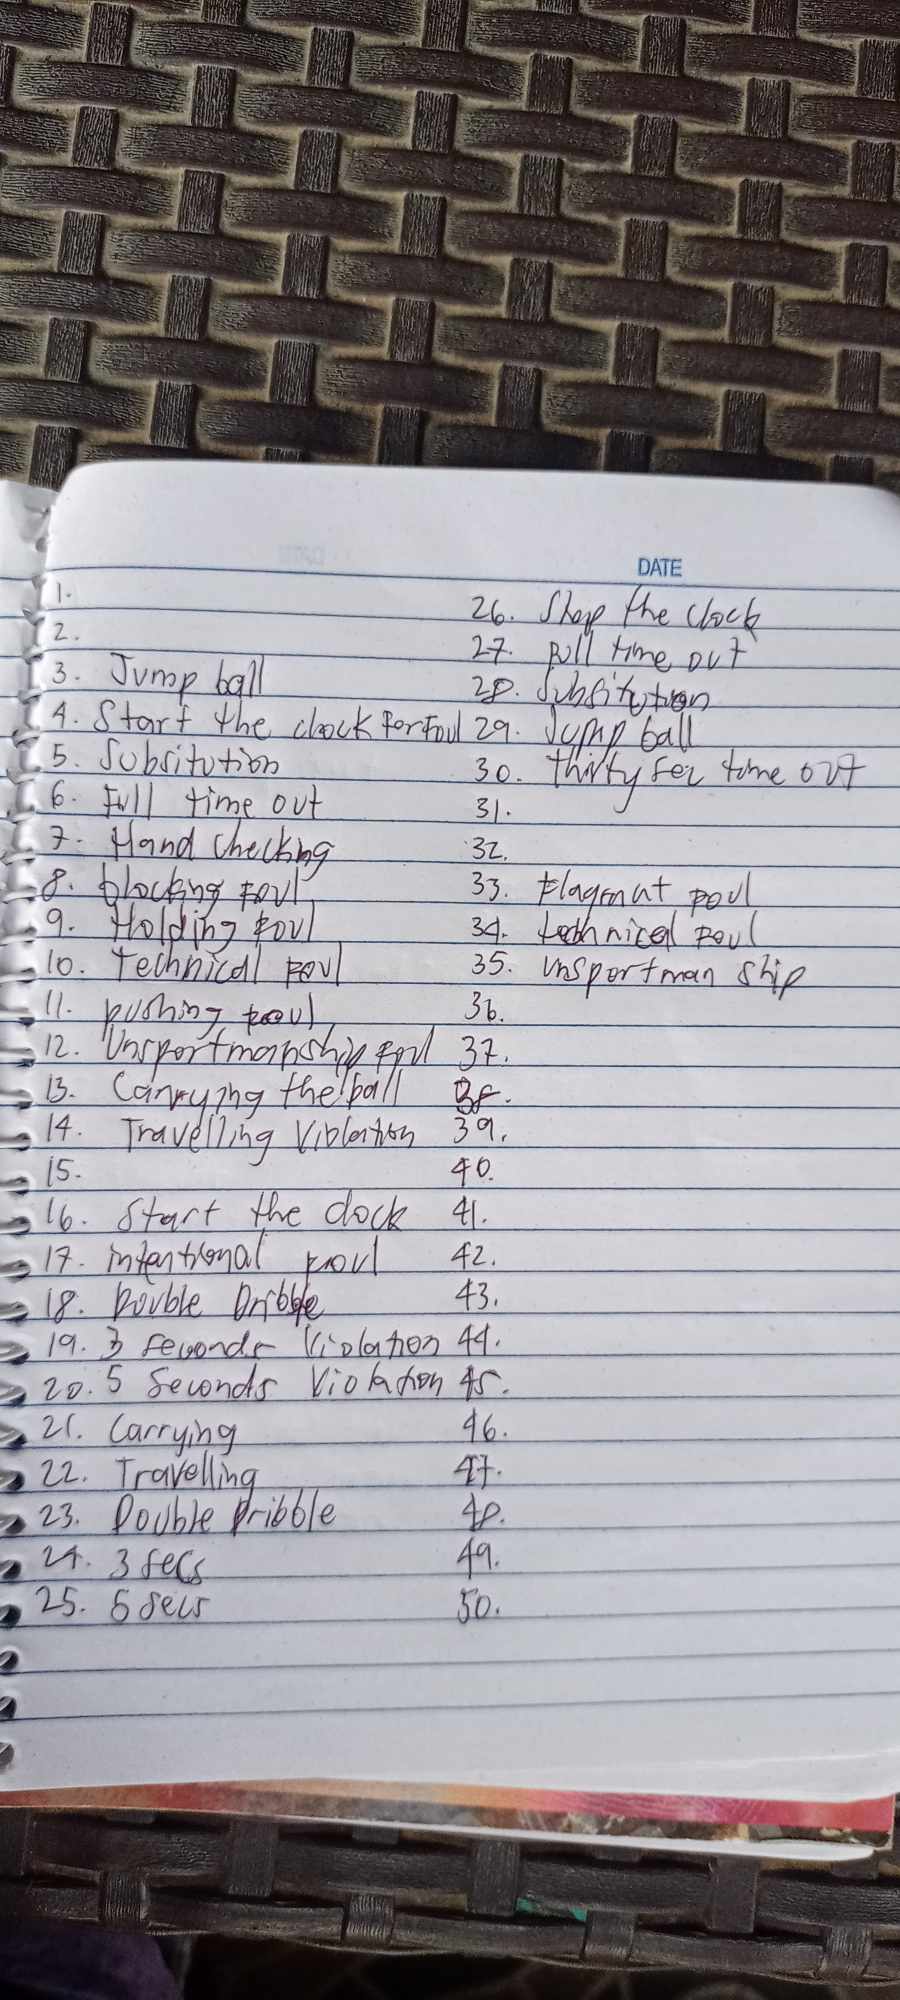 DATE
1.
2.
3. Jump ball
4. Start the clock For Foul
5. Subsitution
6. Full time out
7. Hand Checking
8. blocking Foul
9. Holding Foul
10. technical Foul
11. pushing Foul
12. Unsportmanship Foul
13. Carrying the ball
14. Travelling Violation
15.
16. Start the clock
17. intentional Foul
18. Double Dribble
19. 3 seconds Violation
20. 5 Seconds Violation
21. Carrying
22. Travelling
23. Double Dribble
24. 3 secs
25. 5 secs
26. Shop the clock
27. Full time out
28. Subsitution
29. Jump ball
30. thirty sec time out
31.
32.
33. Flagrant Foul
34. technical Foul
35. Unsportman ship
36.
37.
38.
39.
40.
41.
42.
43.
44.
45.
46.
47.
48.
49.
50.